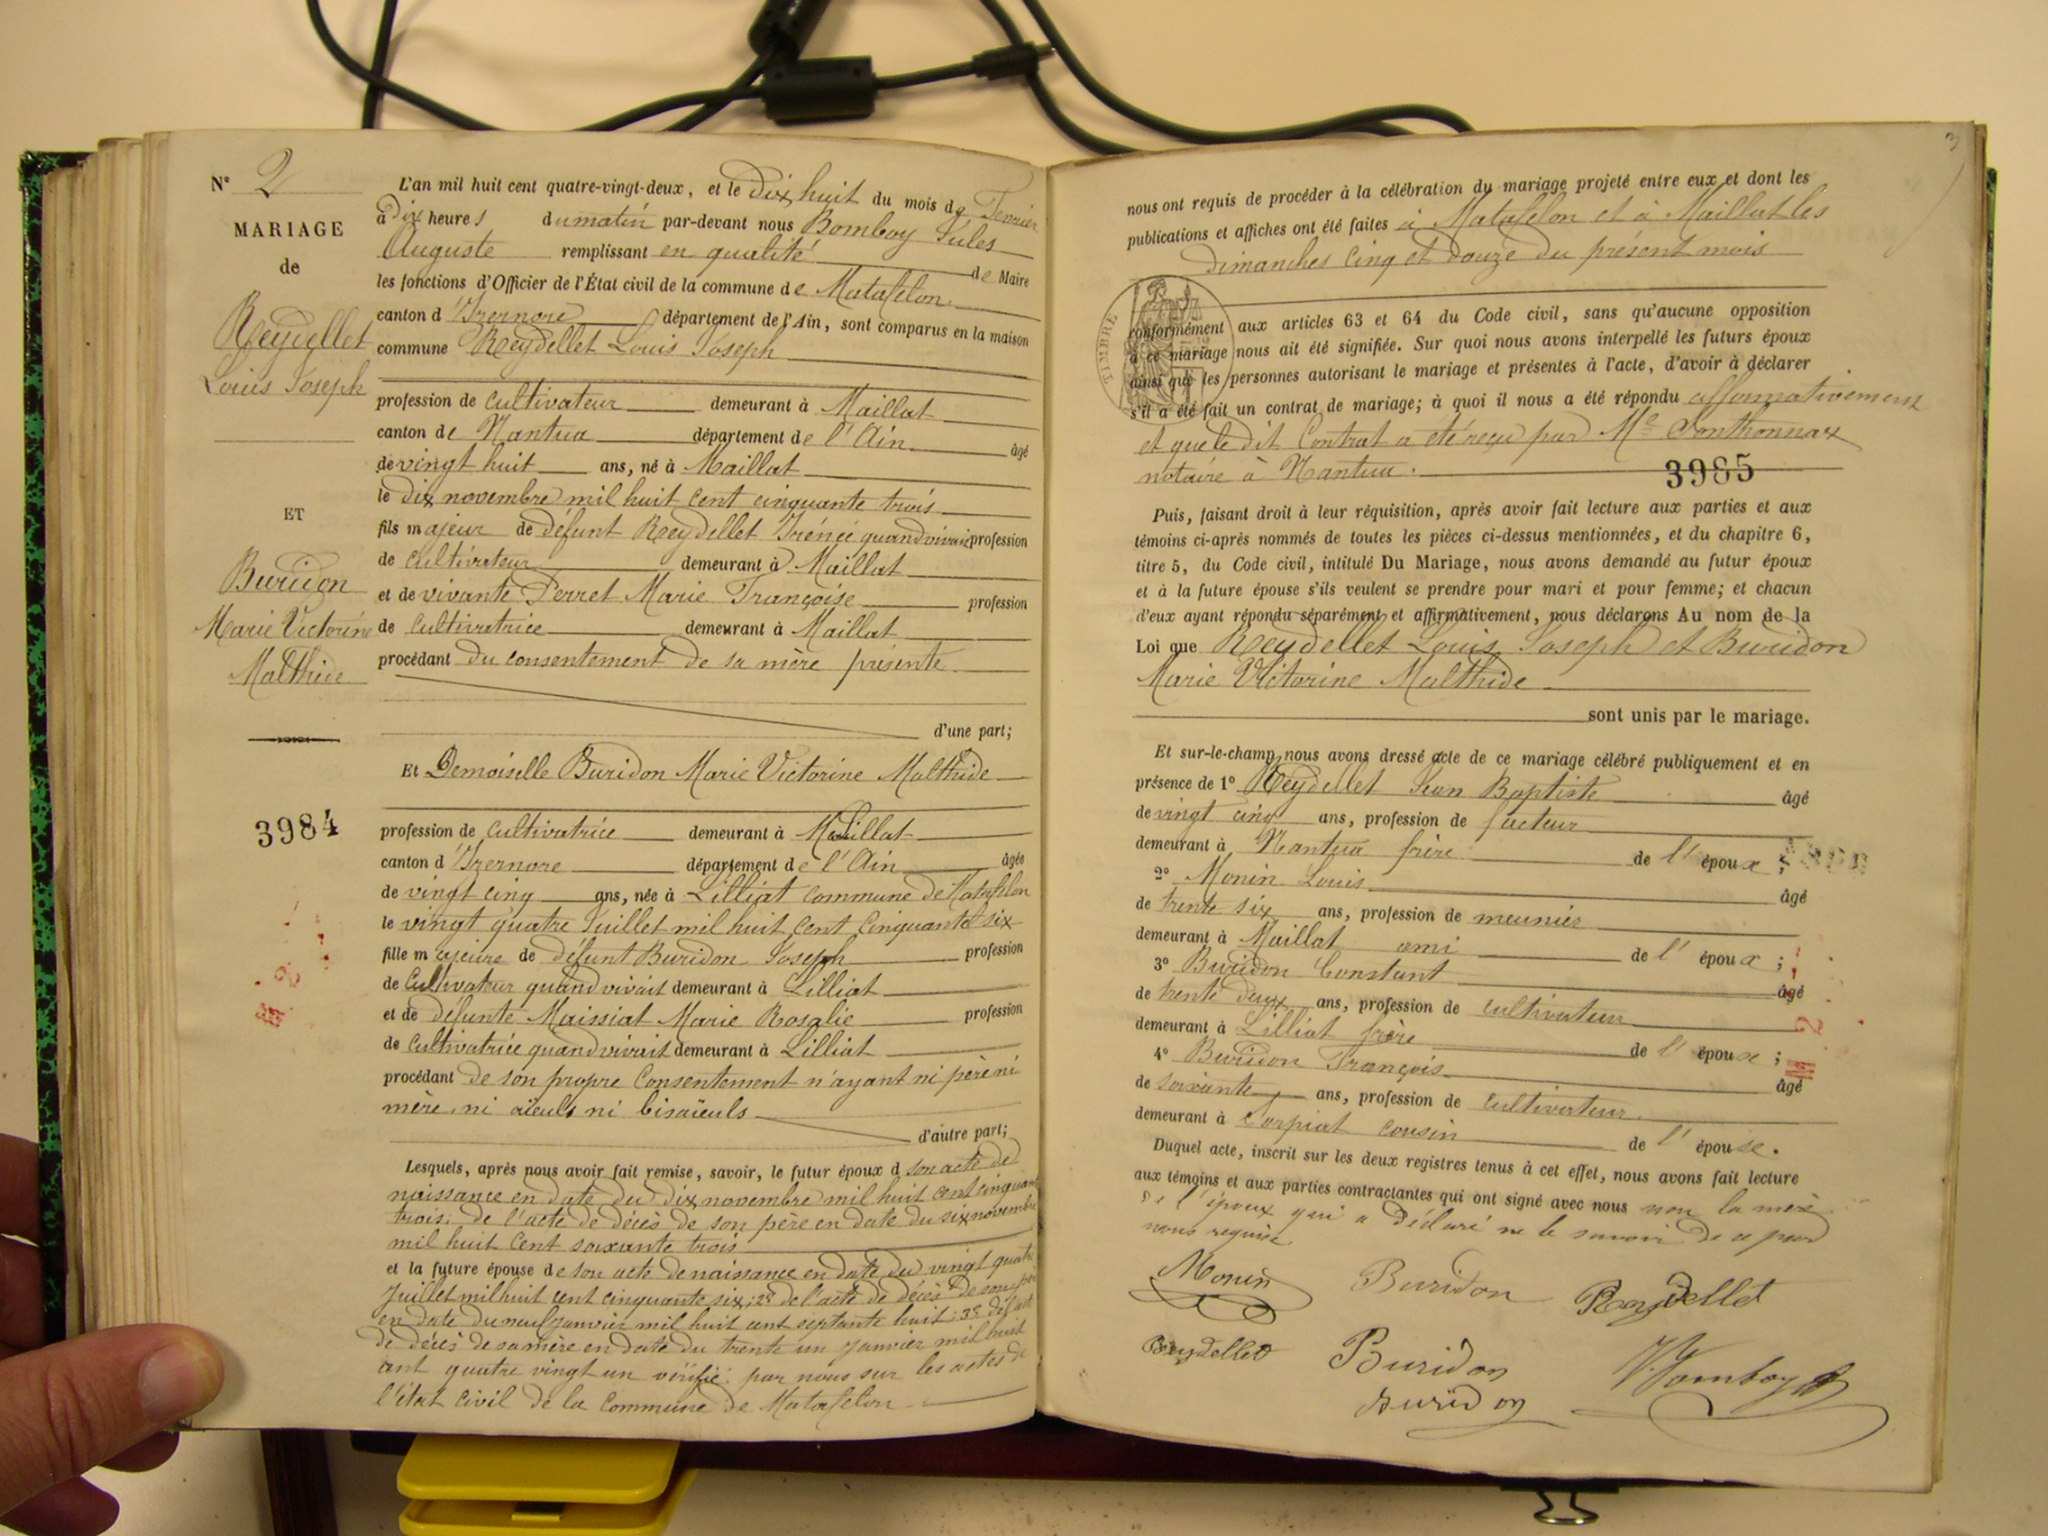 N° 2
MARIAGE
de
Reydellet
Louis Joseph
ET
Buridon
Marie Victorine
Malthide
3984
L'an mil huit cent quatre-vingt-deux, et le dix huit du mois de Fevrier
à dix heures du matin par-devant nous Bomboy Jules
Auguste remplissant en qualité de Maire
les fonctions d'Officier de l'État civil de la commune de Matafelon
canton d'Izernore département de l'Ain, sont comparus en la maison
commune Reydellet Louis Joseph
profession de cultivateur demeurant à Maillat
canton de Nantua département de l'Ain âgé
de vingt huit ans, né à Maillat
le dix novembre mil huit cent cinquante trois
fils majeur de défunt Reydellet Irénée quand vivait profession
de cultivateur demeurant à Maillat
et de vivante Perret Marie Françoise profession
de cultivatrice demeurant à Maillat
procédant du consentement de sa mère présente
d'une part;
Et Demoiselle Buridon Marie Victorine Malthide
profession de cultivatrice demeurant à
canton d'Izernore département de l'Ain âgée
de vingt cinq ans, née à Lilliat commune de Matafelon
le vingt quatre Juillet mil huit cent cinquante six
fille majeure de défunt Buridon Joseph profession
de Cultivateur quand vivait demeurant à Lilliat
et de défunte Maissiat Marie Rosalie profession
de cultivatrice quand vivait demeurant à Lilliat
procédant de son propre Consentement n'ayant ni père ni
mère, ni aïeuls ni bisaïeuls
d'autre part;
Lesquels, après nous avoir fait remise, savoir, le futur époux d son acte de
naissance en date du dix novembre mil huit cent cinquante
trois; de l'acte de décès de son père en date du six novembre
mil huit Cent soixante trois
et la future épouse de son acte de naissance en date du vingt quatre
Juillet mil huit cent cinquante six; 2° de l'acte de décès de son père
en date du neuf janvier mil huit cent septante huit; 3° de l'acte
de décès de sa mère en date du trente un janvier mil huit
cent quatre vingt un vérifié par nous sur les actes de
l'état civil de la Commune de Matafelon
3
nous ont requis de procéder à la célébration du mariage projeté entre eux et dont les
publications et affiches ont été faites à Matafelon et à Maillat les
dimanches cinq et douze du présent mois
TIMBRE
conformément aux articles 63 et 64 du Code civil, sans qu'aucune opposition
à ce mariage nous ait été signifiée. Sur quoi nous avons interpellé les futurs époux
ainsi que les personnes autorisant le mariage et présentes à l'acte, d'avoir à déclarer
s'il a été fait un contrat de mariage; à quoi il nous a été répondu affirmativement
et que le dit Contrat a été reçu par Me Sonthonnax
notaire à Nantua.
3985
Puis, faisant droit à leur réquisition, après avoir fait lecture aux parties et aux
témoins ci-après nommés de toutes les pièces ci-dessus mentionnées, et du chapitre 6,
titre 5, du Code civil, intitulé Du Mariage, nous avons demandé au futur époux
et à la future épouse s'ils veulent se prendre pour mari et pour femme; et chacun
d'eux ayant répondu séparément et affirmativement, nous déclarons Au nom de la
Loi que Reydellet Louis Joseph et Buridon
Marie Victorine Malthide
sont unis par le mariage.
Et sur-le-champ nous avons dressé acte de ce mariage célébré publiquement et en
présence de 1° Reydellet Jean Baptiste âgé
de vingt cinq ans, profession de facteur
demeurant à Nantua frère de l'époux;
2° Monin Louis âgé
de trente six ans, profession de meunier
demeurant à Maillat ami de l'époux;
3° Buridon Constant âgé
de trente deux ans, profession de cultivateur
demeurant à Lilliat frère de l'épouse;
4° Buridon François âgé
de soixante ans, profession de cultivateur
demeurant à Corpiat cousin de l'épouse.
Duquel acte, inscrit sur les deux registres tenus à cet effet, nous avons fait lecture
aux témoins et aux parties contractantes qui ont signé avec nous non la mère
de l'époux qui a déclaré ne le savoir de ce par
nous requise
Monin Buridon Reydellet
Reydellet Buridon Bomboy
Buridon